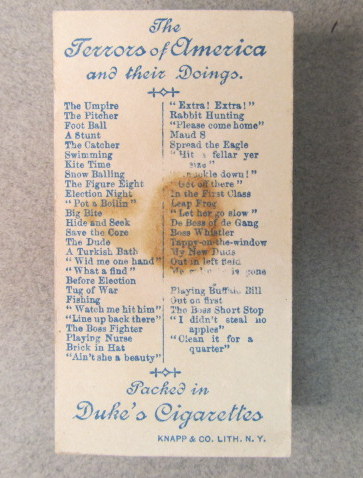 The
Terrors of America
and their Doings.
The Umpire
The Pitcher
Foot Ball
A Stunt
The Catcher
Swimming
Kite Time
Snow Balling
The Figure Eight
Election Night
"Pot a Boilin"
Big Bite
Hide and Seek
Save the Core
The Dude
A Turkish Bath
"Wid me one hand"
"What a find"
Before Election
Tug of War
Fishing
"Watch me hit him"
"Line up back there"
The Boss Fighter
Playing Nurse
Brick in Hat
"Ain't she a beauty"
"Extra! Extra!"
Rabbit Hunting
"Please come home"
Maud S
Spread the Eagle
"Hit a fellar yer
size"
down!"
there"
In the First Class
Leap Frog
"Let her go slow"
De Boss of de Gang
Boss Whistler
Tappy-on-the-window
My New Duds
Out in left field
is gone
Playing Buffalo Bill
Out on first
The Boss Short Stop
"I didn't steal no
apples"
"Clean it for a
quarter"
Packed in
Duke's Cigarettes
KNAPP & CO. LITH. N. Y.